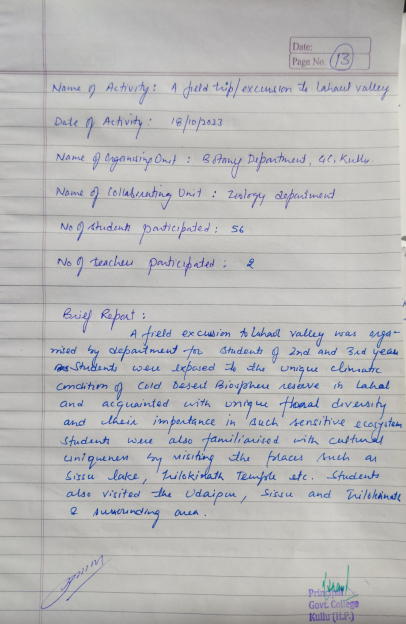 Date:
Page No. 13
Name of Activity : A field trip/excursion to Lahaul valley
Date of Activity : 18/10/2023
Name of Organising Unit : Botany Department, GC, Kullu.
Name of Collaborating Unit : Zoology department
No of students participated : 56
No of teachers participated : 2
Brief Report :
A field excursion to Lahaul valley was orga-
nised by department for students of 2nd and 3rd year
Students were exposed to the unique climatic
condition of Cold Desert Biosphere reserve in Lahal
and acquainted with unique floral diversity
and their importance in such sensitive ecosystem
Students were also familiarised with cultural
uniqueness by visiting the places such as
Sissu lake, Trilokinath Temple etc. Students
also visited the Udaipur, Sissu and Trilokinath
& surrounding area.
Principal
Govt. College
Kullu (H.P.)